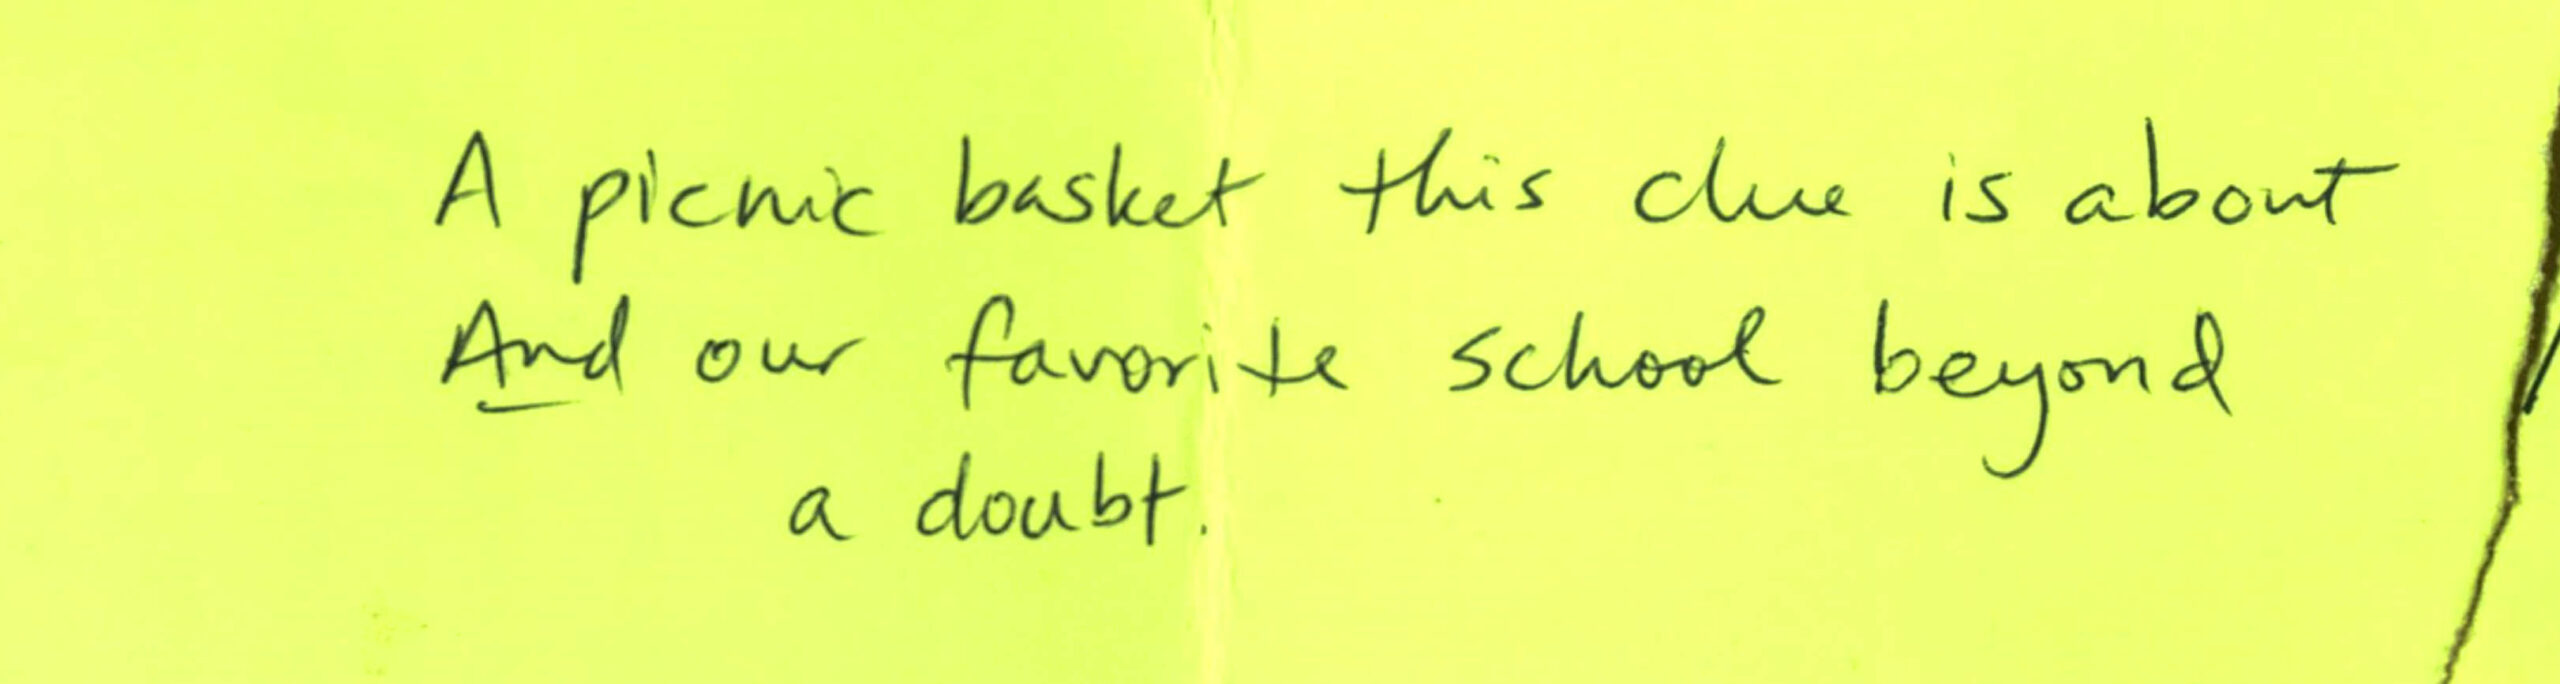 A picnic basket this clue is about
And our favorite school beyond
a doubt.